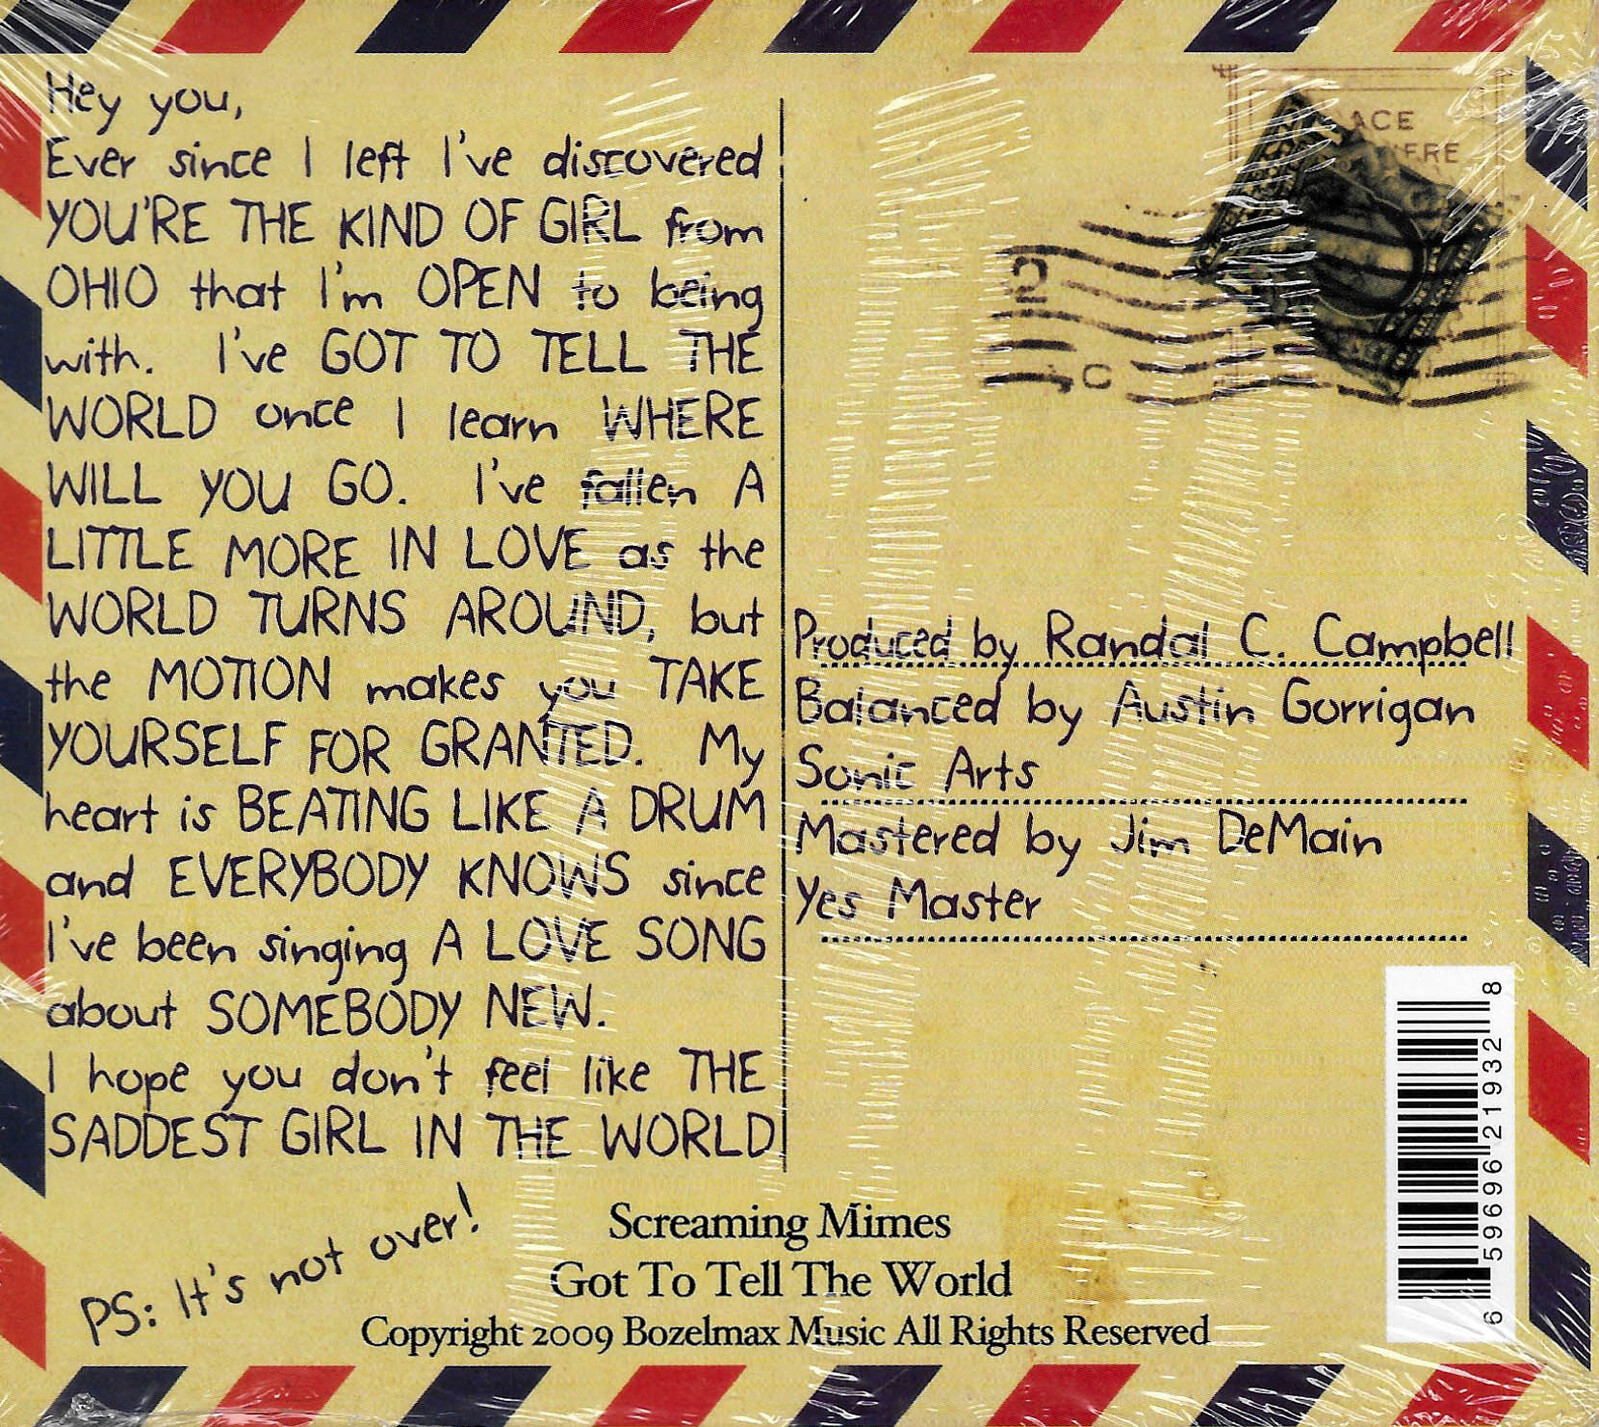 Hey you,
Ever since I left I've discovered
YOU'RE THE KIND OF GIRL from
OHIO that I'm OPEN to being
with. I've GOT TO TELL THE
WORLD once I learn WHERE
WILL YOU GO. I've fallen A
LITTLE MORE IN LOVE as the
WORLD TURNS AROUND, but
the MOTION makes you TAKE
YOURSELF FOR GRANTED. My
heart is BEATING LIKE A DRUM
and EVERYBODY KNOWS since
I've been singing A LOVE SONG
about SOMEBODY NEW.
I hope you don't feel like THE
SADDEST GIRL IN THE WORLD
PS: It's not over!
2
C
Produced by Randal C. Campbell
Balanced by Austin Gorrigan
Sonic Arts
Mastered by Jim DeMain
Yes Master
Screaming Mimes
Got To Tell The World
Copyright 2009 Bozelmax Music All Rights Reserved
6 59696 21932 8